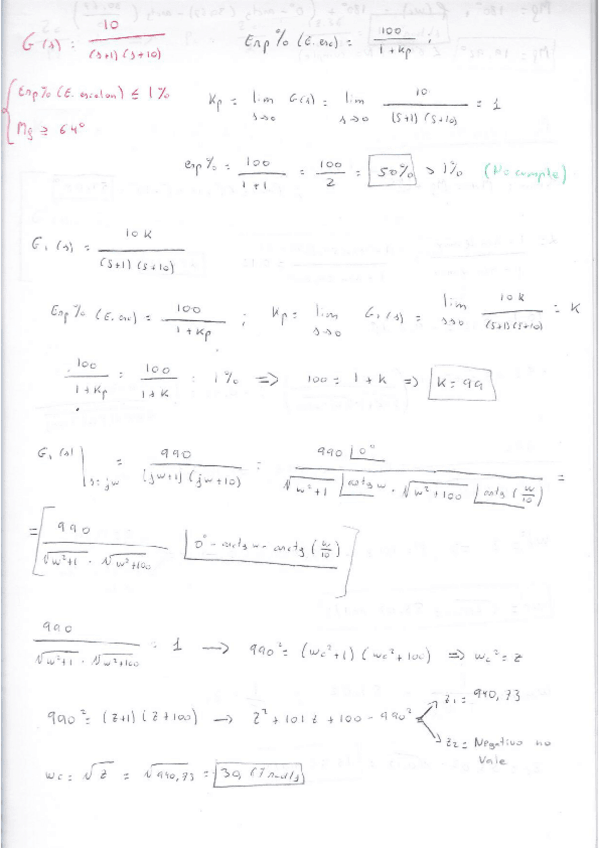 G(s) = 10 / (s+1)(s+10)    Erp% (E. esc) = 100 / 1+Kp ;
{ Erp% (E. escalon) ≤ 1%    Kp = lim s→0 G(s) = lim s→0 10 / (s+1)(s+10) = 1
Mg ≥ 64°
erp% = 100 / 1+1 = 100 / 2 = 50% > 1% (No cumple)
G₁(s) = 10K / (s+1)(s+10)
Erp% (E. esc) = 100 / 1+Kp ; Kp = lim s→0 G₁(s) = lim s→0 10K / (s+1)(s+10) = K
100 / 1+Kp = 100 / 1+K = 1% => 100 = 1+K => K = 99
G₁(s)|s=jw = 990 / (jw+1)(jw+10) = 990 |0° / √w²+1 |arctg w · √w²+100 |arctg (w/10) =
= [ 990 / √w²+1 · √w²+100 |0° - arctg w - arctg (w/10) ]
990 / √w²+1 · √w²+100 = 1 → 990² = (wc²+1)(wc²+100) => wc² = z
990² = (z+1)(z+100) → z² + 101z + 100 - 990² = z₁ = 940,73
z₂ = Negativo no vale
wc = √z = √940,73 = 30,67 rad/s